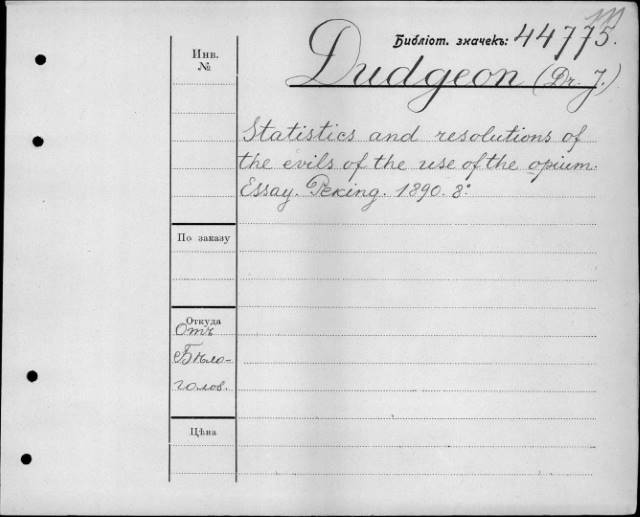 Библіот. значекъ: 44775.
Инв.
№
Dudgeon (Dr. J.)
Statistics and resolutions of
the evils of the use of the opium.
Essay. Peking. 1890. 8°
По заказу
Откуда
Отъ
Бѣло-
голов.
Цѣна